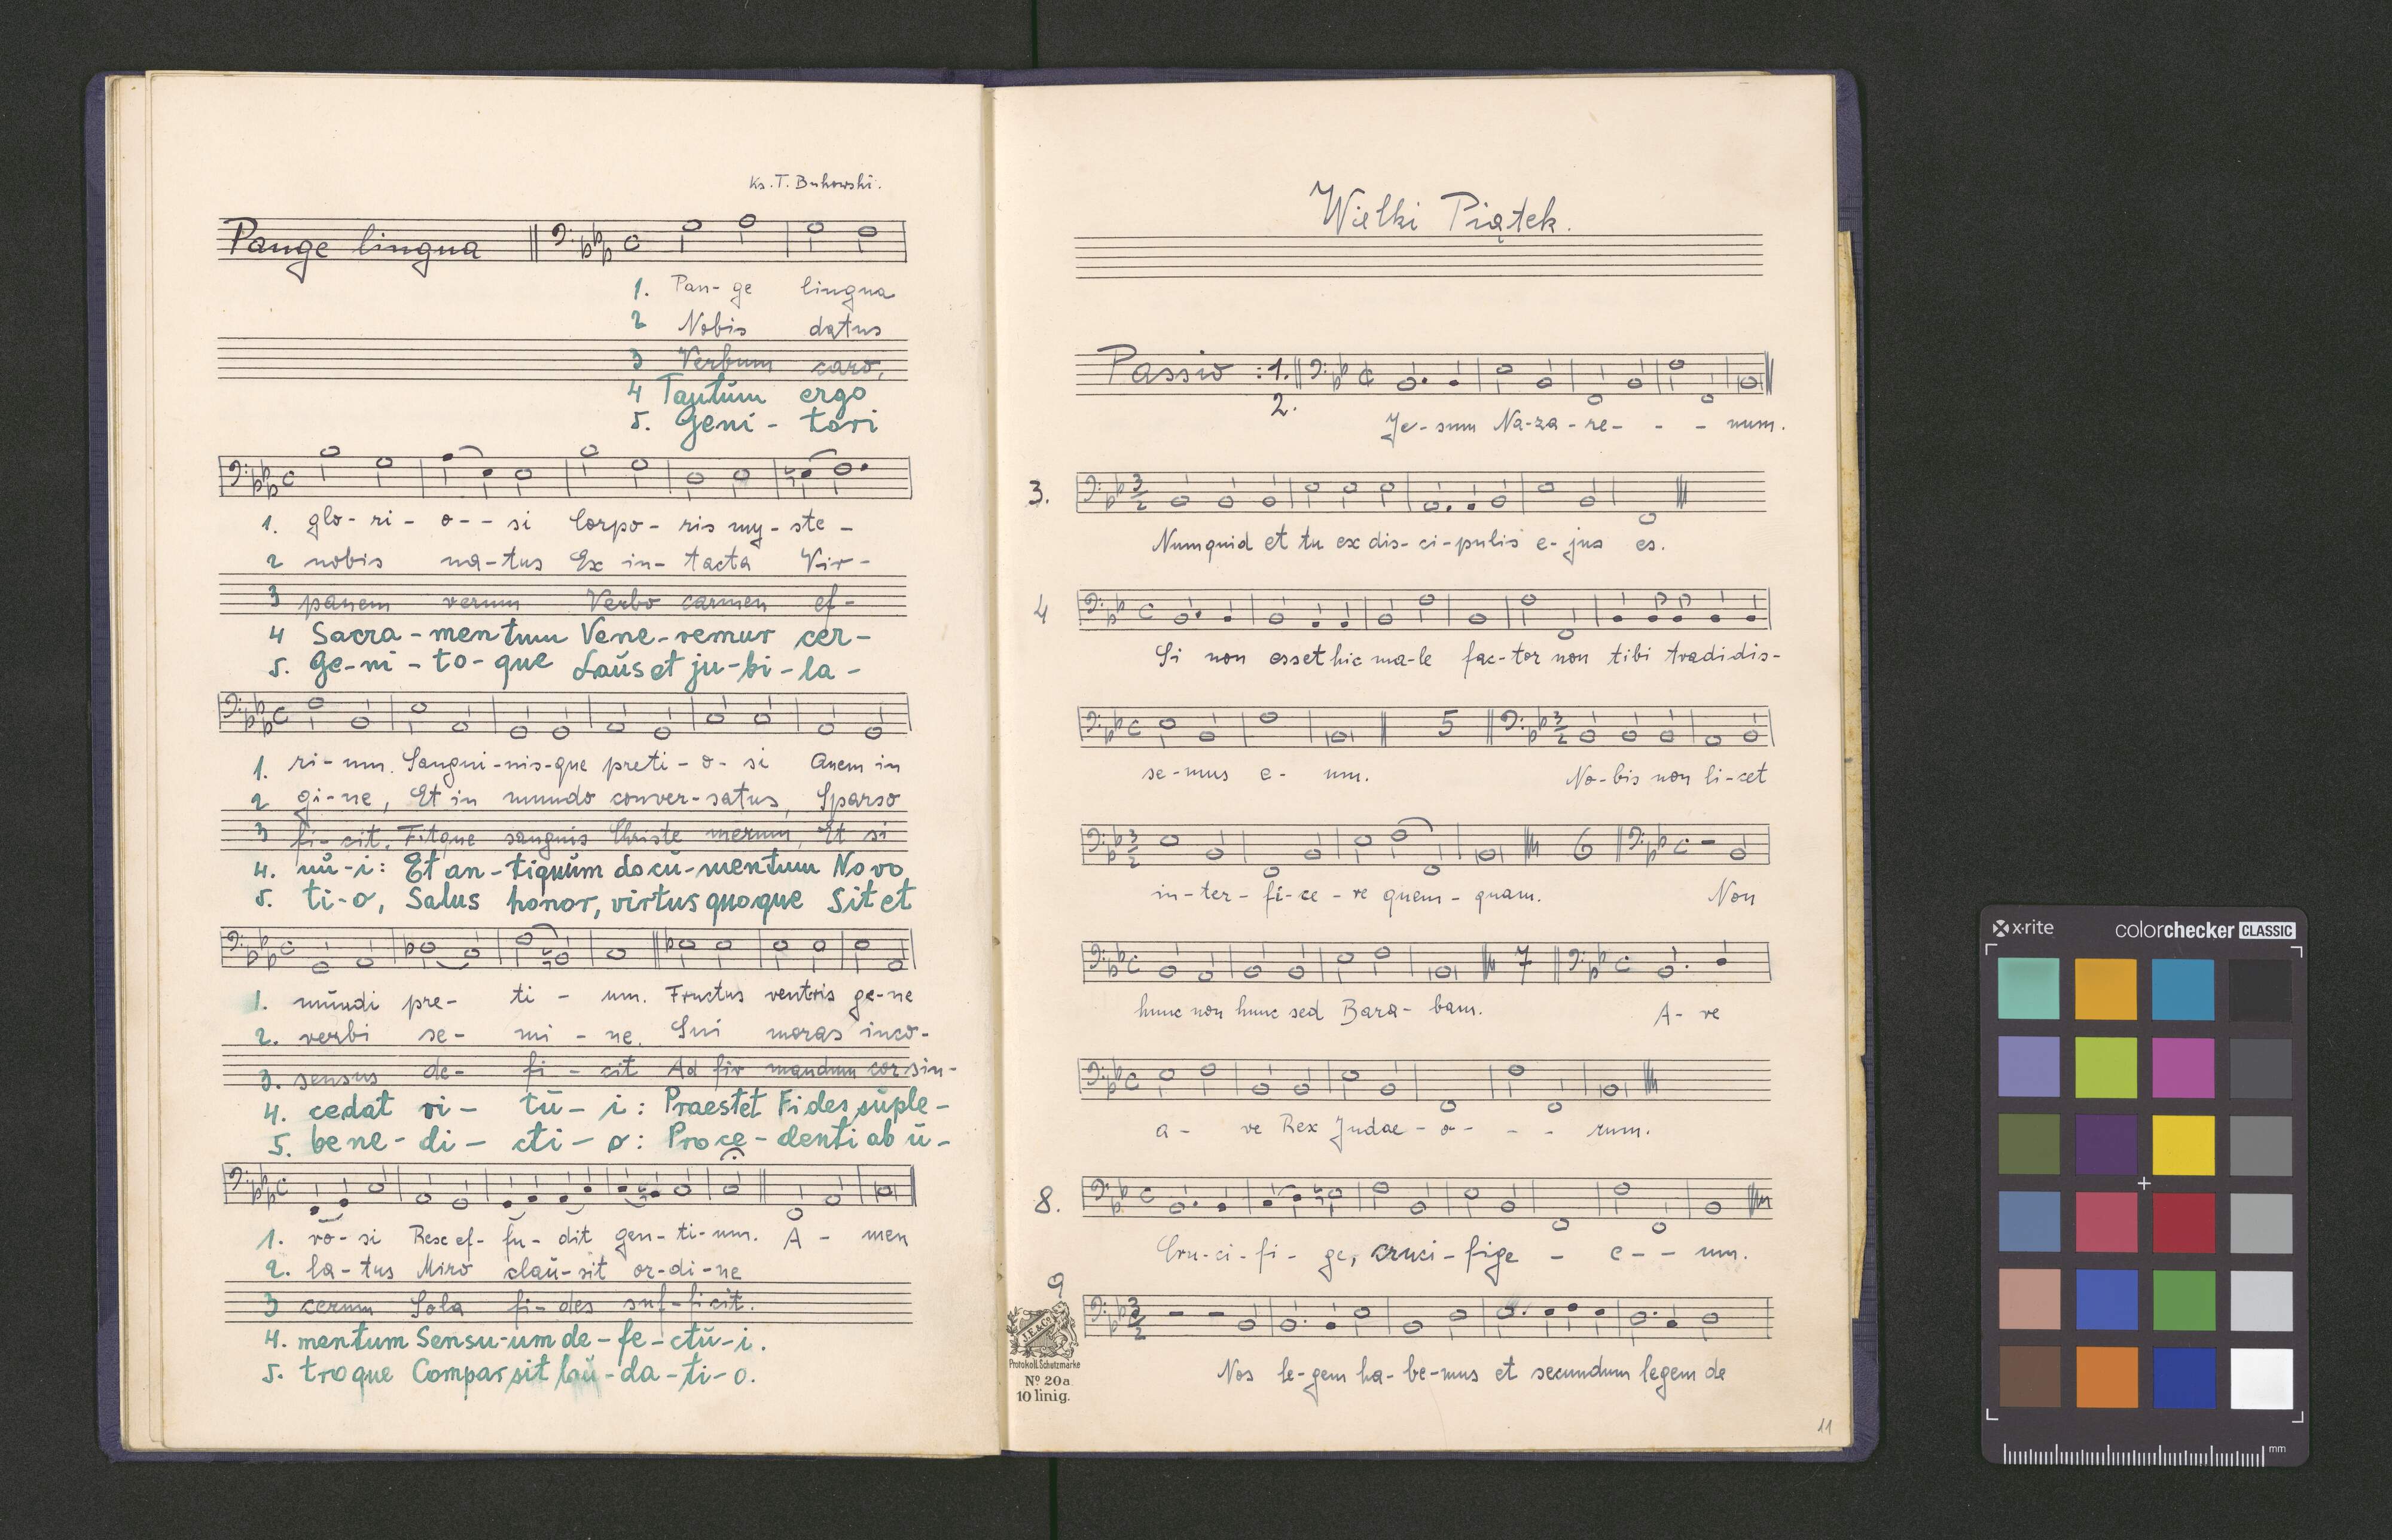 Ks. T. Bukowski.
Pange lingua
1. Pan-ge lingua
2 Nobis datus
3 Verbum caro,
4 Tantum ergo
5. Geni-tori
1. glo-ri-o--si Corpo-ris my-ste-
2 nobis na-tus Ex in-tacta Vir-
3 panem verum Verbo carmen ef-
4 Sacra-mentum Vene-remur cer-
5. Ge-ni-to-que Laus et ju-bi-la-
1. ri-um. Sangui-nis-que preti-o-si Quem in
2 gi-ne, Et in mundo conver-satus, Sparso
3 fi-cit, Fitque sanguis Christe merum, Et si
4. nŭ-i: Et an-tiquŭm docŭ-mentum Novo
5. ti-o, Salus honor, virtus quoque Sit et
1. mŭndi pre- ti - um. Fructus ventris ge-ne
2. verbi se- mi - ne. Sui moras inco-
3. sensus de- fi - cit Ad fir mandum cor sin-
4. cedat ri- tŭ- i: Praestet Fides sŭple-
5. bene-di- cti-o: Proce-denti ab ŭ-
1. ro-si Rex ef-fu-dit gen-ti-um. A - men
2. la-tus Miro claŭ-sit or-di-ne
3 cerum Sola fi-des suf-ficit.
4. mentum Sensu-um de-fe-ctŭ-i.
5. troque Compar sit laŭ-da-ti-o.
Wielki Piątek.
Passio : 1.
2.
Je-sum Na-za-re- - - num.
3.
Numquid et tu ex dis-ci-pulis e-jus es.
4
Si non esset hic ma-le fac-tor non tibi tradidis-
5
se-mus e- um. No-bis non li-cet
6
in-ter-fi-ce-re quem-quam. Non
7
hunc non hunc sed Bara-bam. A-ve
a- ve Rex Judae-o- - - rum.
8.
Cru-ci-fi-ge, cruci-fige - e-- um.
9
J.E. & Co.
Protokoll. Schutzmarke
No 20a.
10 linig.
Nos le-gem ha-be-mus et secundum legem de
11
x·rite
colorchecker CLASSIC
mm